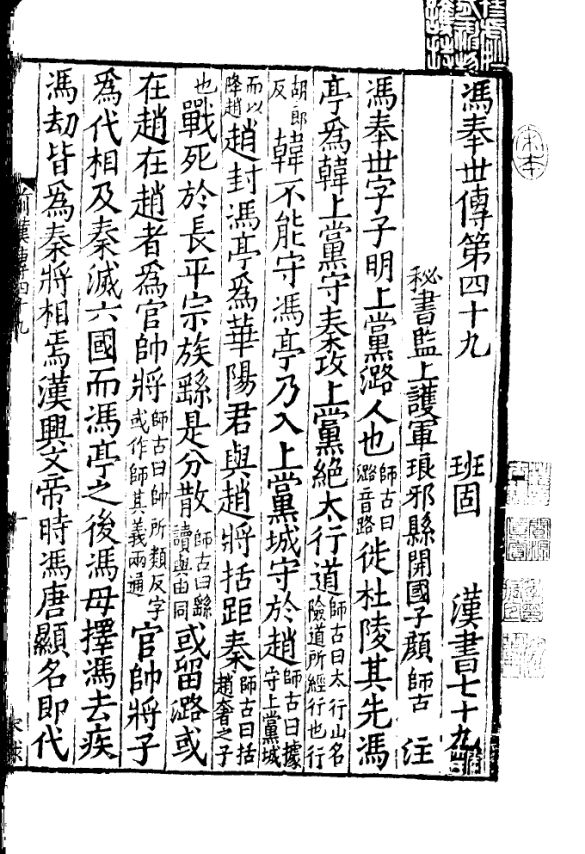 馮奉世傳第四十九 班固 漢書七十九
秘書監上護軍琅邪縣開國子顏師古注
馮奉世字子明上黨潞人也師古曰潞音路徙杜陵其先馮
亭爲韓上黨守秦攻上黨絕太行道師古曰太行山名險道所經行也行
胡郎反韓不能守馮亭乃入上黨城守於趙師古曰據守上黨城
而以降趙趙封馮亭爲華陽君與趙將括距秦師古曰括趙奢之子
也戰死於長平宗族繇是分散師古曰繇讀與由同或留潞或
在趙在趙者爲官帥將師古曰帥所類反字或作師其義兩通官帥將子
爲代相及秦滅六國而馮亭之後馮毋擇馮去疾
馮劫皆爲秦將相焉漢興文帝時馮唐顯名即代
前漢傳四十九
宋本